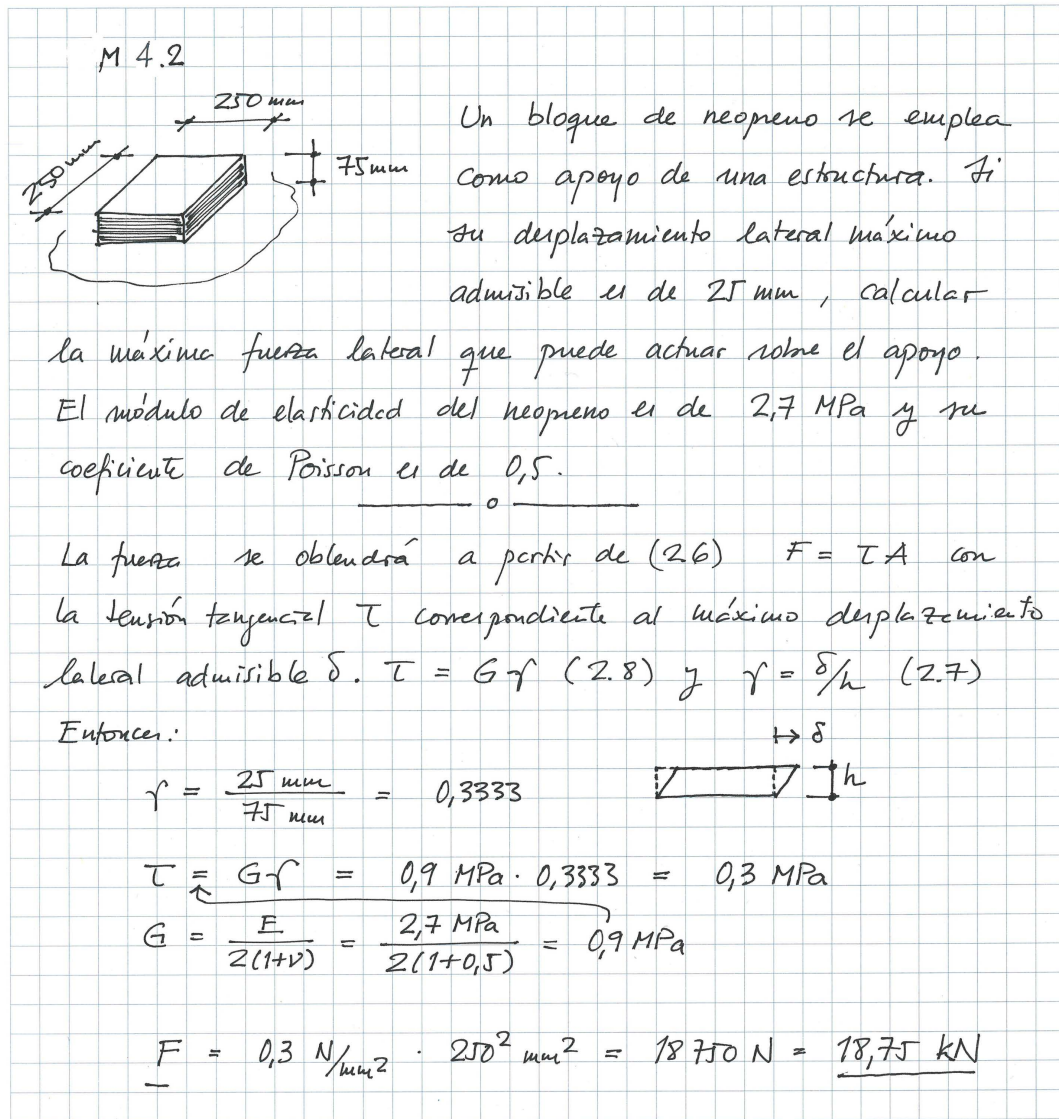 M 4.2
250 mm
250 mm
75 mm
Un bloque de neopreno se emplea
como apoyo de una estructura. Si
su desplazamiento lateral máximo
admisible es de 25 mm, calcular
la máxima fuerza lateral que puede actuar sobre el apoyo.
El módulo de elasticidad del neopreno es de 2,7 MPa y su
coeficiente de Poisson es de 0,5.
La fuerza se obtendrá a partir de (2.6) F = τ A con
la tensión tangencial τ correspondiente al máximo desplazamiento
lateral admisible δ. τ = Gγ (2.8) y γ = δ/h (2.7)
Entonces:
δ
γ = 25 mm / 75 mm = 0,3333
h
τ = Gγ = 0,9 MPa · 0,3333 = 0,3 MPa
G = E / 2(1+ν) = 2,7 MPa / 2(1+0,5) = 0,9 MPa
F = 0,3 N/mm² · 250² mm² = 18 750 N = 18,75 kN